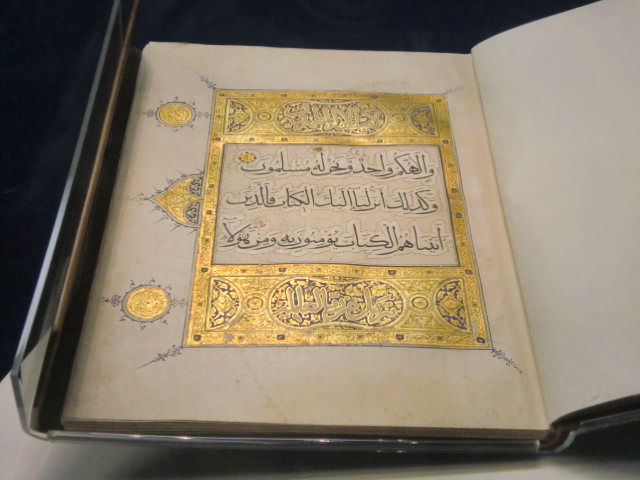 وَإِلَٰهُكُمْ وَاحِدٌ وَنَحْنُ لَهُ مُسْلِمُونَ
وَكَذَٰلِكَ أَنْزَلْنَا إِلَيْكَ الْكِتَابَ فَالَّذِينَ
آتَيْنَاهُمُ الْكِتَابَ يُؤْمِنُونَ بِهِ وَمِنْ هَٰؤُلَاءِ